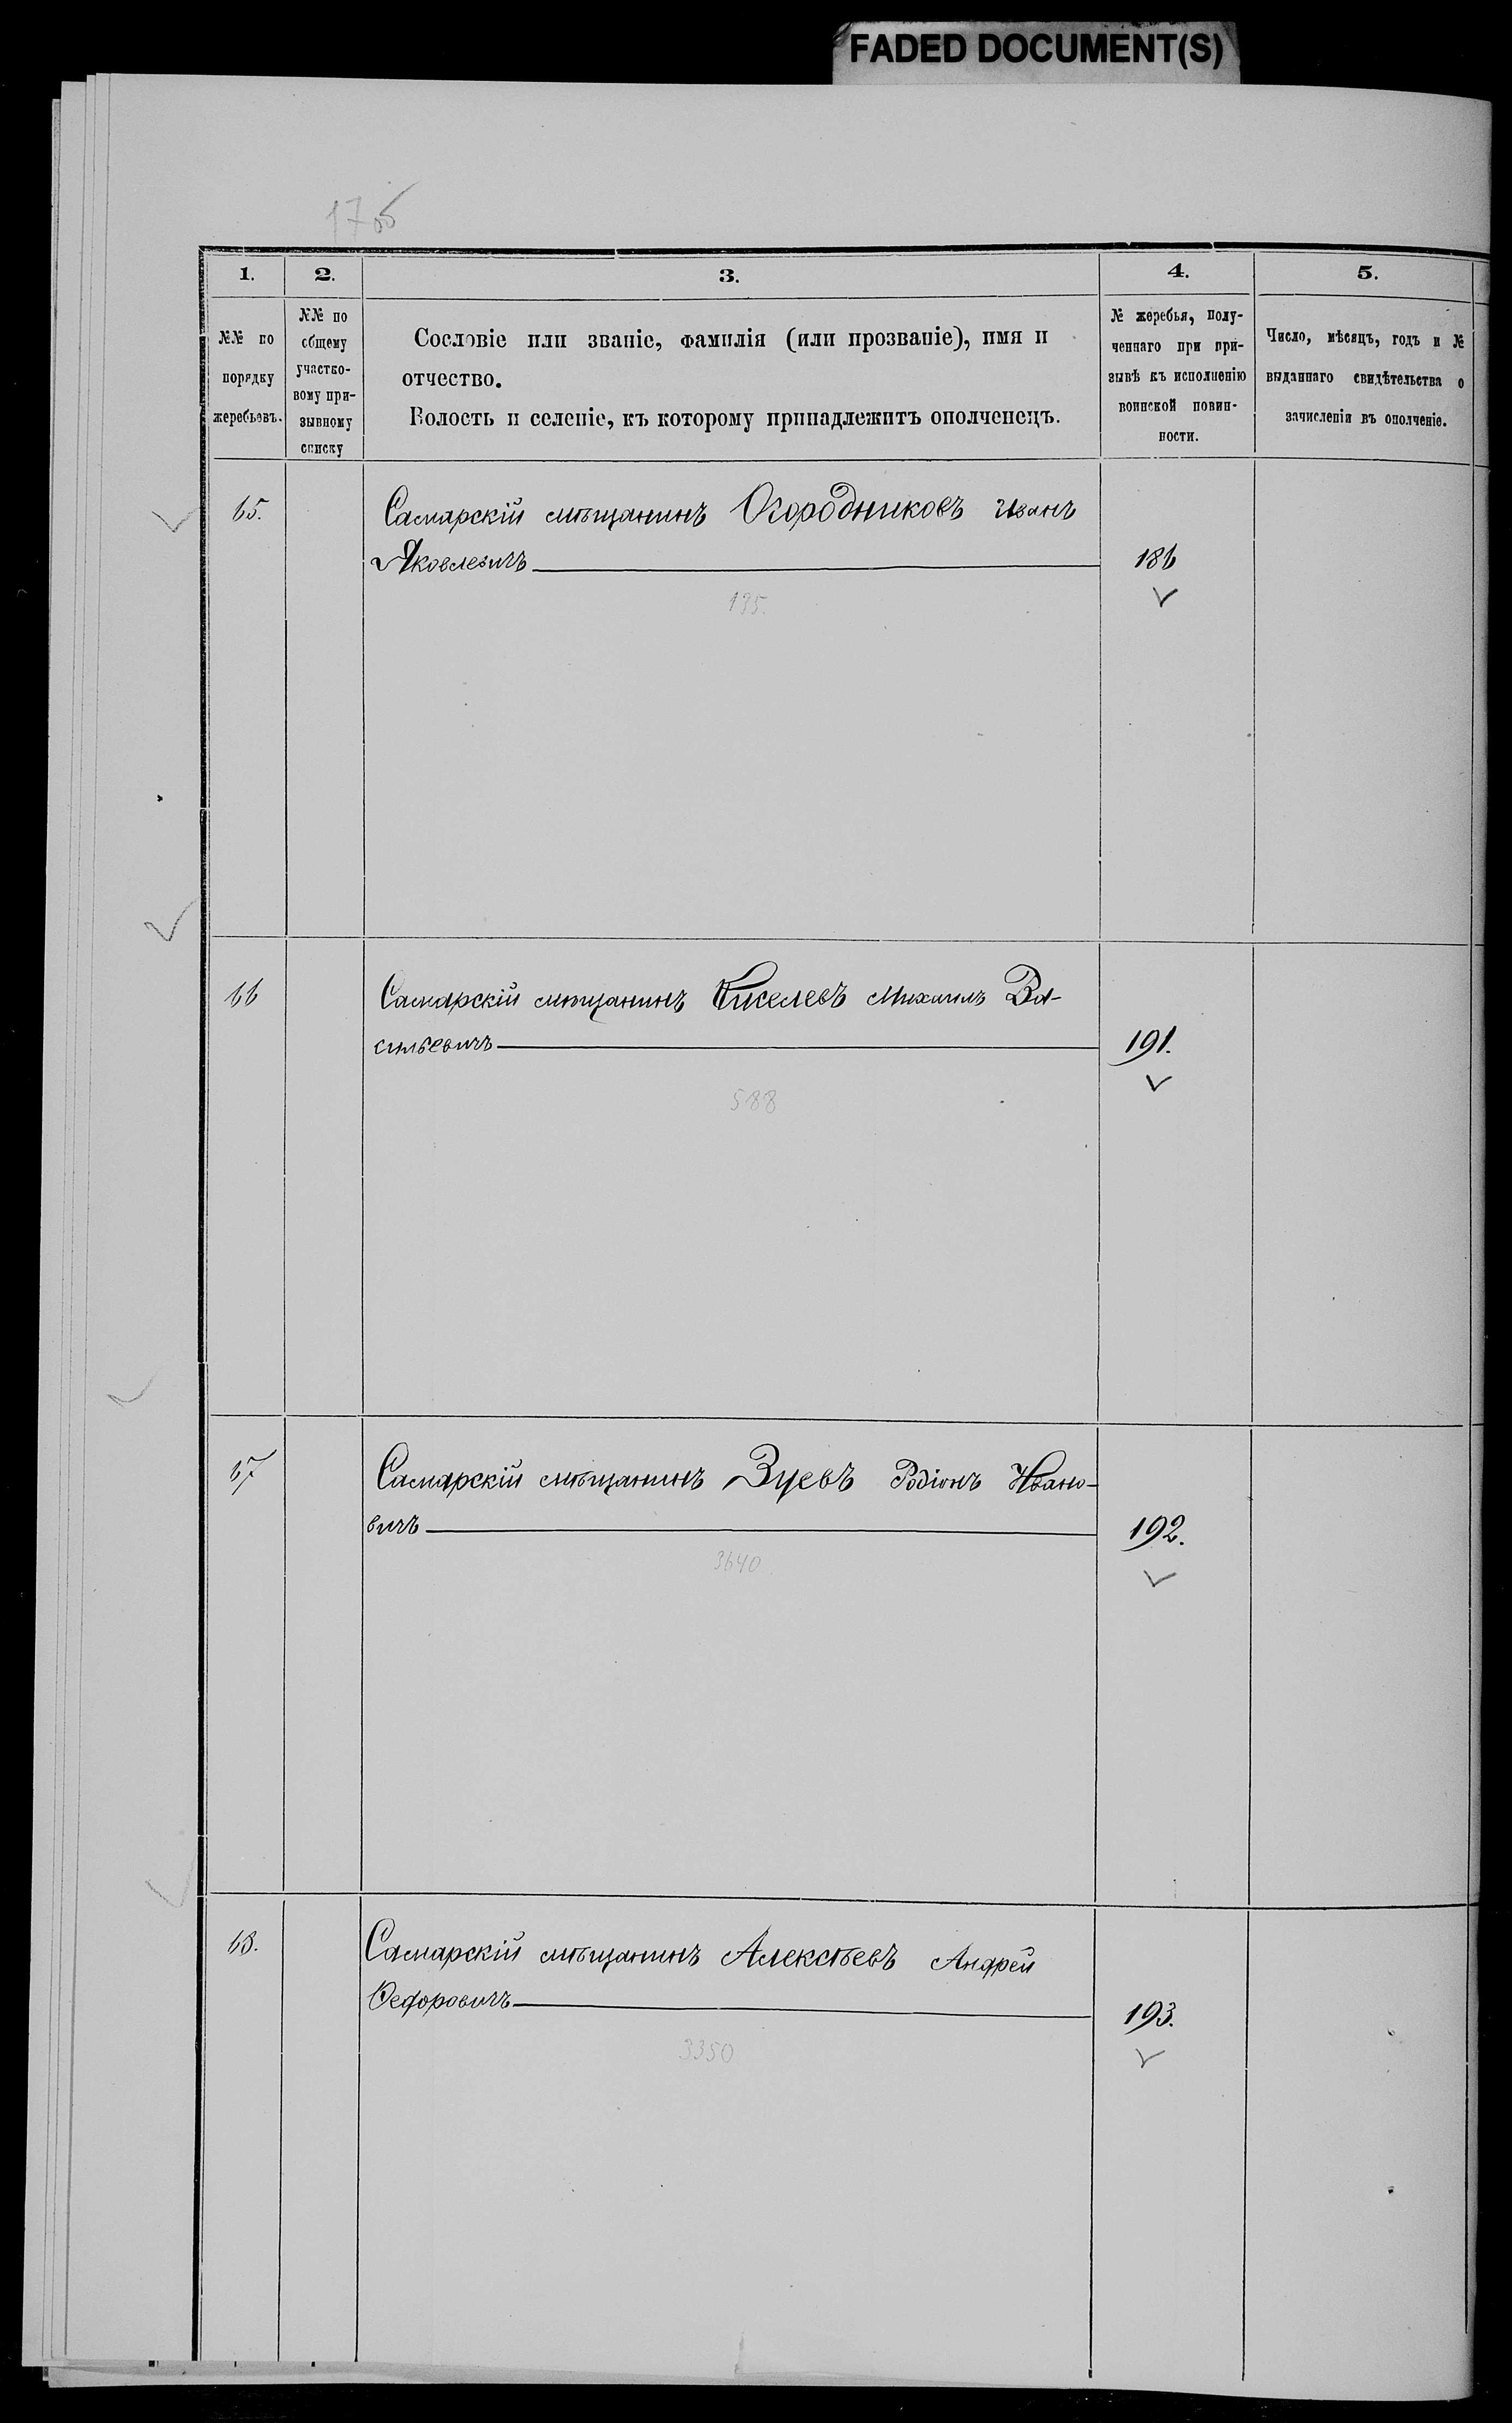 FADED DOCUMENT(S)
17об
1. 2. 3. 4. 5.
№№ по порядку жеребьевъ.
№№ по общему участковому призывному списку
Сословіе или званіе, фамилія (или прозваніе), имя и
отчество.
Волость и селеніе, къ которому принадлежитъ ополченецъ.
№ жеребья, полу-
ченнаго при при-
зывѣ къ исполненію
воинской повин-
ности.
Число, мѣсяцъ, годъ и №
выданнаго свидѣтельства о
зачисленіи въ ополченіе.
65. Самарскій мѣщанинъ Огородниковъ Иванъ
Яковлевичъ 186
135.
66 Самарскій мѣщанинъ Киселевъ Михаилъ Ва-
сильевичъ 191.
588
67 Самарскій мѣщанинъ Зуевъ Родіонъ Ивано-
вичъ 192.
3640
68. Самарскій мѣщанинъ Алексѣевъ Андрей
Федоровичъ 193.
3350